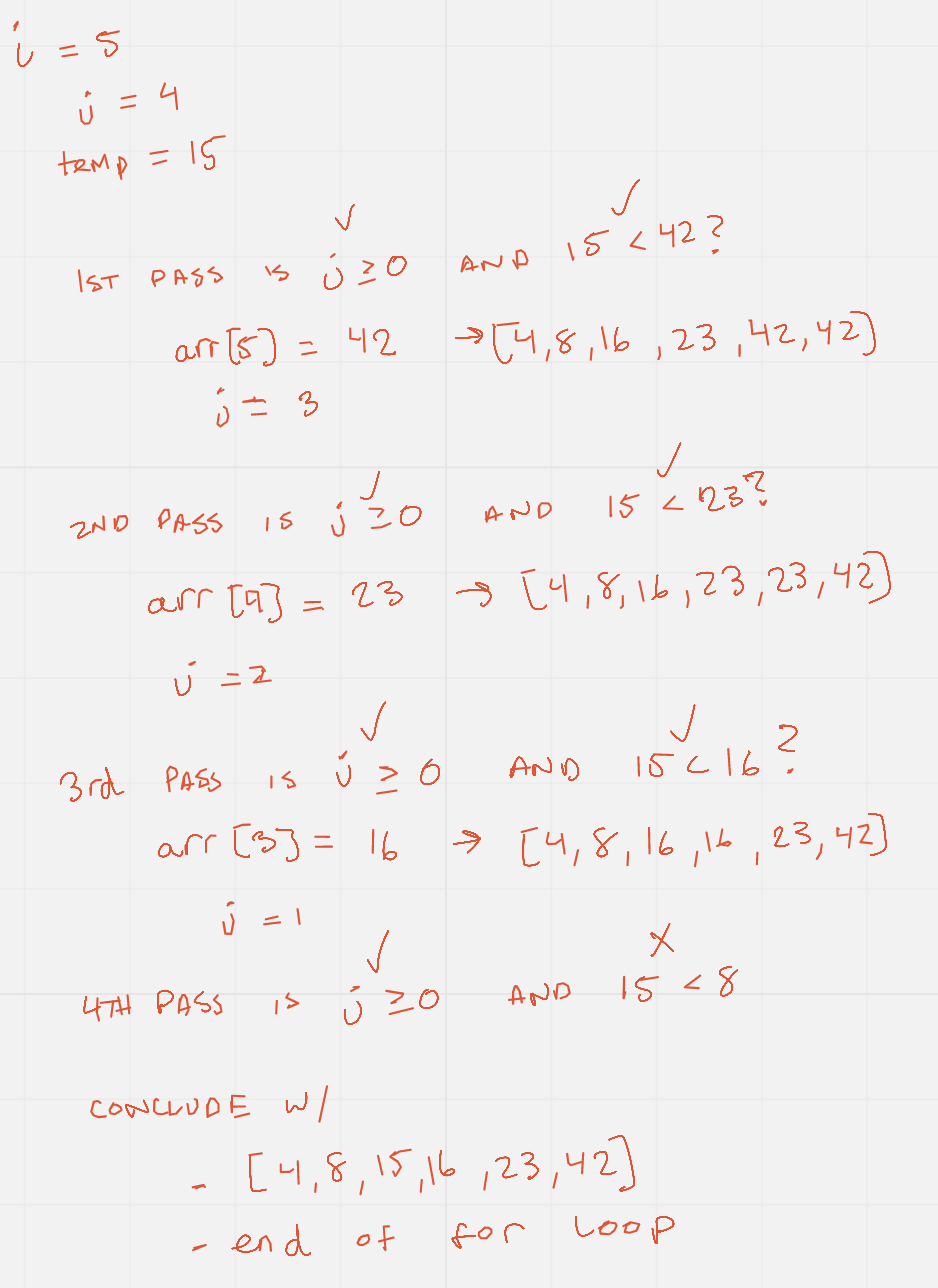 i = 5
j = 4
temp = 15
✓ ✓
1ST PASS IS j ≥ 0 AND 15 < 42?
arr[5] = 42 → [4,8,16,23,42,42]
j = 3
✓ ✓
2ND PASS IS j ≥ 0 AND 15 < 23?
arr[4] = 23 → [4,8,16,23,23,42]
j = 2
✓ ✓
3rd PASS IS j ≥ 0 AND 15 < 16?
arr[3] = 16 → [4,8,16,16,23,42]
j = 1
✓ X
4TH PASS IS j ≥ 0 AND 15 < 8
CONCLUDE W/
- [4,8,15,16,23,42]
- end of for loop